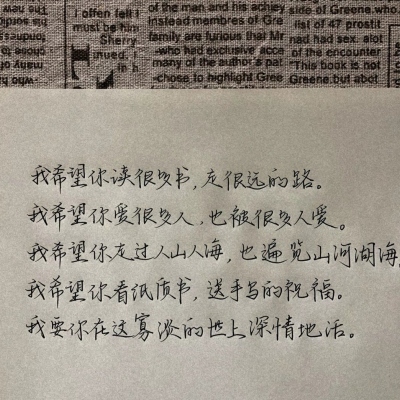 I often felt l
must be him
Sherry
nued.
in h
of the man and his achiev
instead membres of Gre
family are furious that Mr
-who had exclusive acce
many of the author's pat
-chose to highlight Gree
side of Greene, who
list of 47 prostit
nad had sex. alot
of the encounter
"This book is not
Greene, but abot
我希望你读很多书,走很远的路。
我希望你爱很多人,也被很多人爱。
我希望你走过人山人海,也遍览山河湖海,
我希望你看纸质书,送手写的祝福。
我要你在这寡淡的世上深情地活。